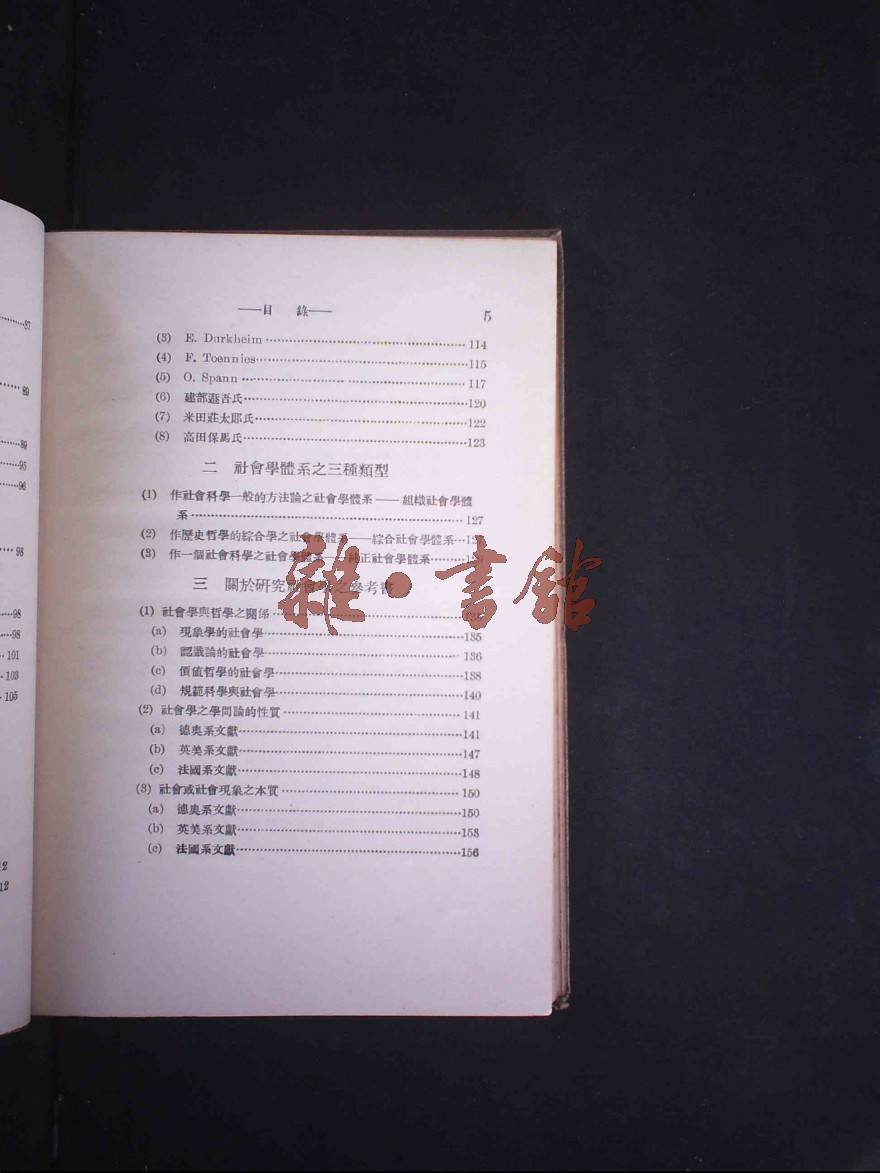 87
89
89
95
96
98
98
98
101
103
105
12
12
——目 錄——
5
(3) E. Durkheim 114
(4) F. Toennies 115
(5) O. Spann 117
(6) 建部遯吾氏 120
(7) 米田莊太郎氏 122
(8) 高田保馬氏 123
二 社會學體系之三種類型
(1) 作社會科學一般的方法論之社會學體系——組織社會學體
系 127
(2) 作歷史哲學的綜合學之社會學體系——綜合社會學體系
(3) 作一個社會科學之社會學體系——純正社會學體系
三 關於研究社會學之參考書
(1) 社會學與哲學之關係
(a) 現象學的社會學 135
(b) 認識論的社會學 136
(c) 價值哲學的社會學 138
(d) 規範科學與社會學 140
(2) 社會學之學問論的性質 141
(a) 德奧系文獻 141
(b) 英美系文獻 147
(c) 法國系文獻 148
(3) 社會或社會現象之本質 150
(a) 德奧系文獻 150
(b) 英美系文獻 153
(c) 法國系文獻 156
雜·書館